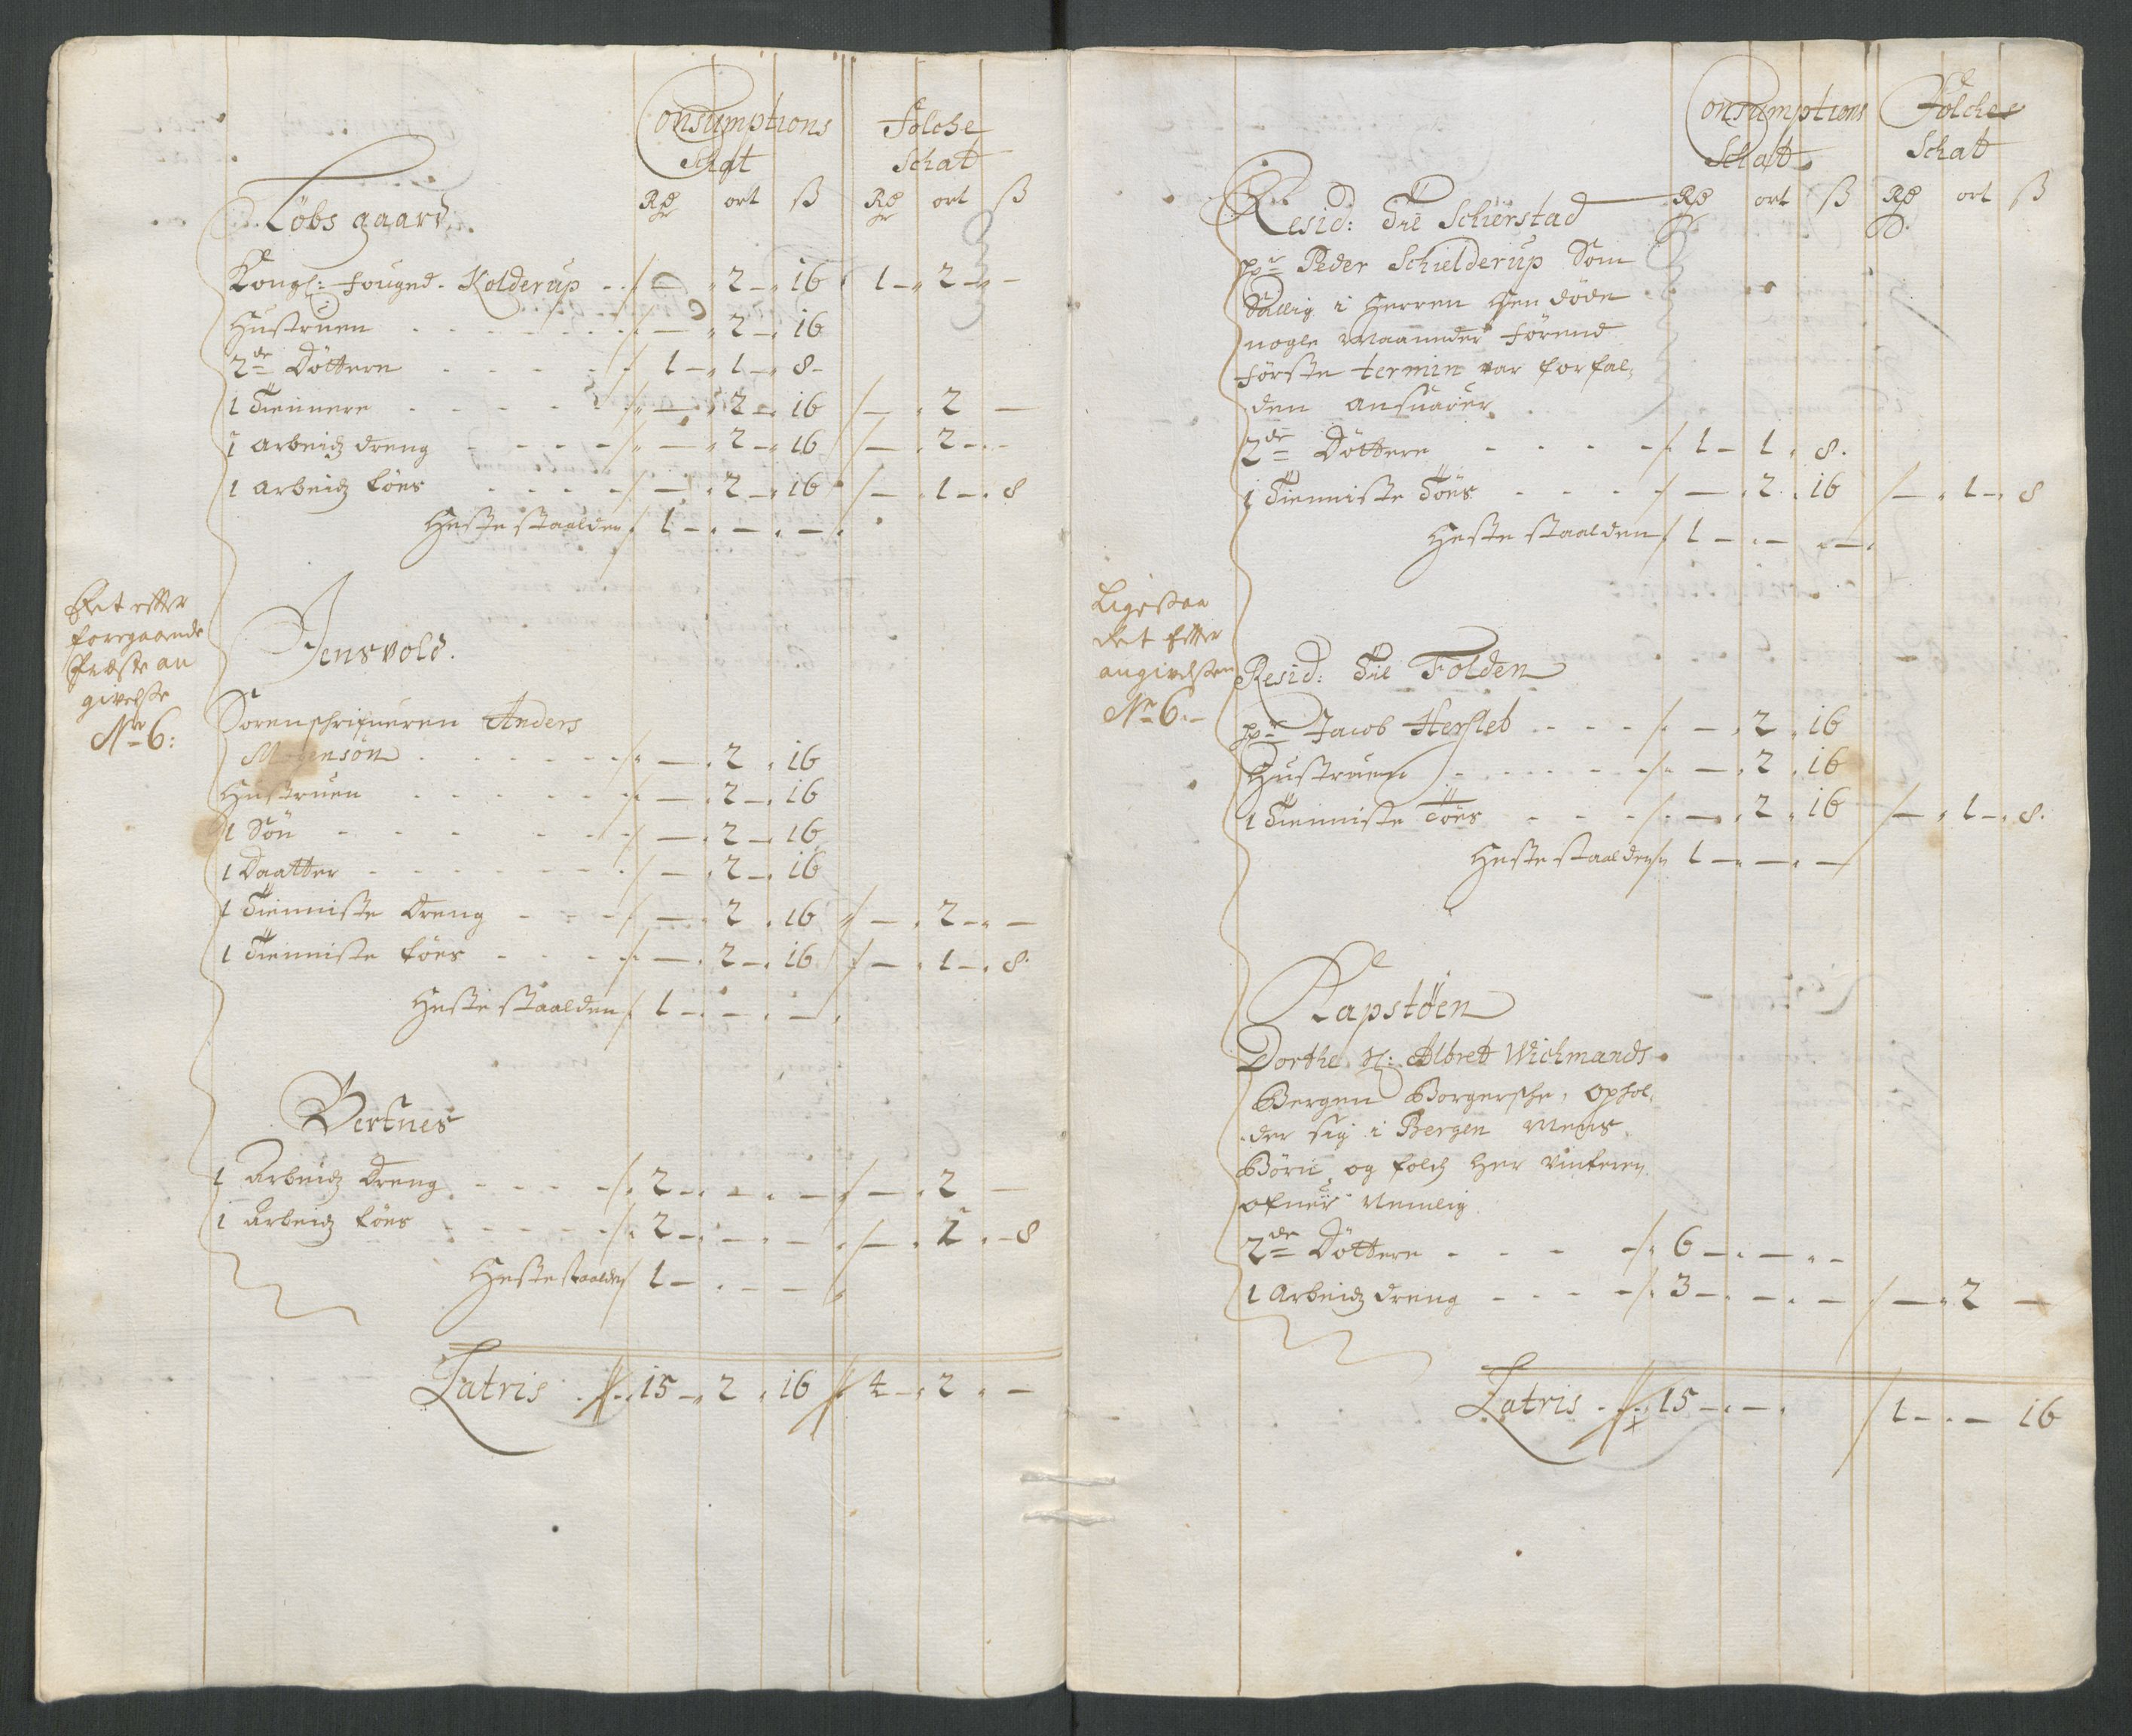 Consumptions Folche
Schat Schat
Rdr ort ß Rdr ort ß
Löbsgaard
Kongl: fouged Kolderup - 2 16 1 2 -
Hustruen - 2 16
2de Döttere 1 1 8
1 Tiennere - 2 16 - 2 -
1 arbeidz dreng - 2 16 - 2 -
1 arbeidz töes - 2 16 - 1 8
Heste staalden 1 - -
Ret effter
foregaaende
Præste an
givelse
No 6:
Jensvold.
Sorenschrifueren Anders
Mogensøn - 2 16
Hustruen - 2 16
1 Sön - 2 16
1 Daatter - 2 16
1 Tienniste dreng - 2 16 - 2 -
1 Tienniste töes - 2 16 - 1 8
Heste staalden 1 - -
Bertnes
1 Arbeidz dreng 2 - - - 2 -
1 Arbeidz töes 2 - - - 1 8
Heste staalden 1 - -
Latris 15 2 16 4 2 -
Consumptions Folche
Schatt Schat
Rdr ort ß Rdr ort ß
Resid: Til Schierstad
hr Peder Schielderup Som
Sallig i Herren hen döde
nogle Maaneder förend
förste termin var forfal
den ansuarer
2de Döttere 1 1 8
1 Tienniste Töes - 2 16 - 1 8
Heste staalden 1 - -
Ligesaa
ret effter
angivelsen
No 6.
Resid: Til Folden
hr Jacob Hersleb - 2 16
Hustruen - 2 16
1 Tienniste Töes - 2 16 - 1 8
Heste staalden 1 - -
Rapstöen
Dorthe Sl: Albret Wichmands
Bergen Borgersche, ophol
der sig i Bergen mens
Börn og folch her
nemlig
2de Döttere 6 - -
1 Arbeidz dreng 3 - - - 2 -
Latris 15 - - 1 - 16